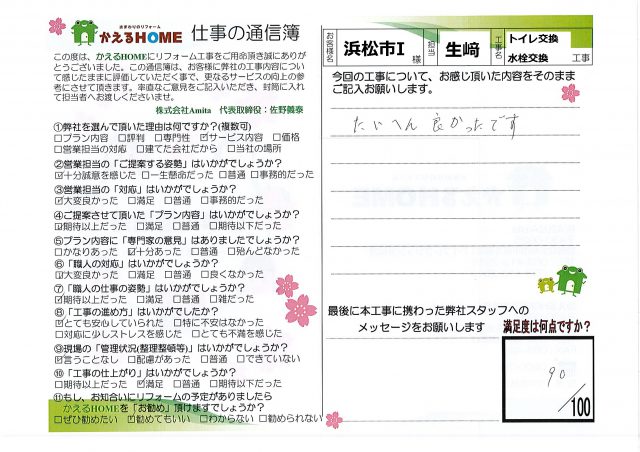 水まわりのリフォーム
かえるHOME 仕事の通信簿
この度は、かえるHOMEにリフォーム工事をご用命頂き誠にありが
とうございました。この通信簿は、お客様に弊社の工事内容について
感じたままに評価していただく事で、更なるサービスの向上の参
考にさせて頂きます。率直なご意見をご記入いただき、封筒に入れ
て担当者へお渡しくださいませ。
株式会社Amita 代表取締役：佐野義泰
①弊社を選んで頂いた理由は何ですか?(複数可)
□プラン内容 □評判 □専門性 ☑サービス内容 □価格
□営業担当の対応 □建てた会社だから □当社の場所
②営業担当の「ご提案する姿勢」はいかがでしょうか?
☑十分誠意を感じた □一生懸命だった □普通 □事務的だった
③営業担当の「対応」はいかがでしょうか?
☑大変良かった □満足 □普通 □事務的だった
④ご提案させて頂いた「プラン内容」はいかがでしょうか?
☑期待以上だった □満足 □普通 □期待以下だった
⑤プラン内容に「専門家の意見」はありましたでしょうか?
□かなりあった ☑十分あった □普通 □殆んどなかった
⑥「職人の対応」はいかがでしょうか?
☑大変良かった □満足 □普通 □良くなかった
⑦「職人の仕事の姿勢」はいかがでしょうか?
☑期待以上だった □満足 □普通 □雑だった
⑧「工事の進め方」はいかがでしたか?
☑とても安心していられた □特に不安はなかった
□対応に少しストレスを感じた □とても不満を感じた
⑨現場の「管理状況(整理整頓等)」はいかがでしょうか?
☑言うことなし □配慮があった □普通 □できていない
⑩「工事の仕上がり」はいかがでしょうか?
□期待以上だった ☑満足 □普通 □期待以下だった
⑪もし、お知合いにリフォームの予定がありましたら
かえるHOMEを「お勧め」頂けますでしょうか?
□ぜひ勧めたい ☑勧めてもいい □わからない □勧められない
お客様名 浜松市I 様 担当 生﨑 工事名 トイレ交換
水栓交換 工事
今回の工事について、お感じ頂いた内容をそのまま
ご記入お願いします。
たいへん 良かったです
最後に本工事に携わった弊社スタッフへの
メッセージをお願いします 満足度は何点ですか?
90
/100